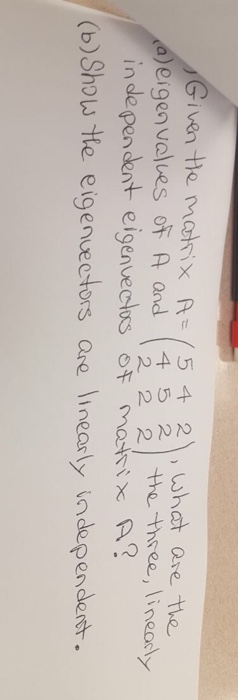 ) Given the matrix A = (5 4 2
4 5 2
2 2 2), what are the
(a) eigenvalues of A and the three, linearly
independent eigenvectors of matrix A?
(b) Show the eigenvectors are linearly independent.